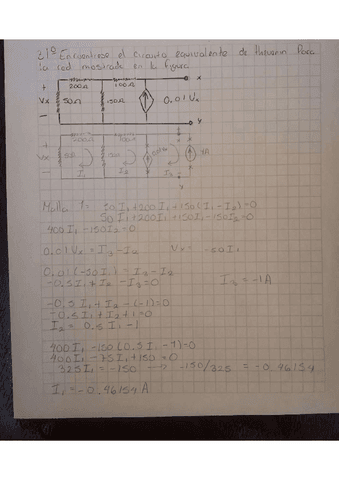 21º Encuentre el circuito equivalente de Thevenin Para
la red mostrada en la figura
200Ω 100Ω x
+
Vx 50Ω 150Ω 0.01 Vx
-
y
200Ω 100Ω x
+
Vx
-
I1 I2 I3
y
Malla 1: 50 I1 + 200 I1 + 150 (I1 - I2) = 0
50 I1 + 200 I1 + 150 I1 - 150 I2 = 0
400 I1 - 150 I2 = 0
0.01 Vx = I3 - I2 Vx = -50 I1
0.01 (-50 I1) = I3 - I2
-0.5 I1 + I2 - I3 = 0 I3 = -1A
-0.5 I1 + I2 - (-1) = 0
-0.5 I1 + I2 + 1 = 0
I2 = 0.5 I1 - 1
400 I1 - 150 (0.5 I1 - 1) = 0
400 I1 - 75 I1 + 150 = 0
325 I1 = -150 → -150/325 = -0.46154
I1 = -0.46154 A